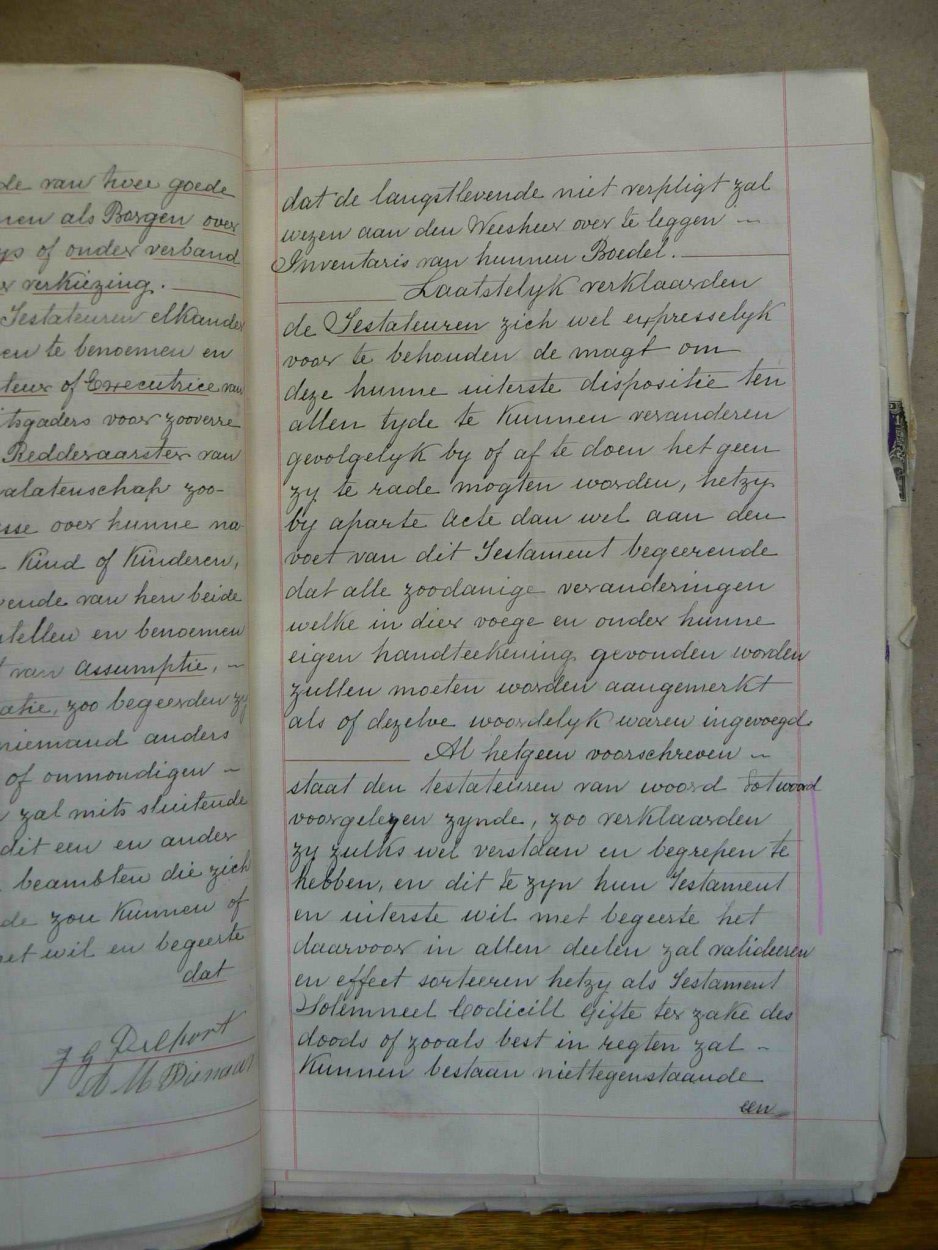 de van twee goede
nen als Borgen over
ys of onder verband
er verkiezing.
Testateuren elkander
en te benoemen en
teur of Executrice van
itsgaders voor zooverre
Redderaarster van
alatenschap zoo-
sse over hunne na
Kind of Kinderen,
vende van hen beide
stellen en benoemen
t van assumptie, ~
atie, zoo begeerden zy
niemand anders
of onmondigen ~
zal mits sluitende
dit een en ander
beambten die zich
de zou kunnen of
het wil en begeerte
dat
J G Delport
dat de langstlevende niet verpligt zal
wezen aan den Weesheer over te leggen ~
Inventaris van hunnen Boedel.
Laatstelyk verklaarden
de Testateuren zich wel expresselyk
voor te behouden de magt om
deze hunne uiterste dispositie ten
allen tyde te kunnen veranderen
gevolgelyk by of af te doen het geen
zy te rade mogten worden, hetzy
by aparte acte dan wel aan den
voet van dit Testament begeerende
dat alle zoodanige veranderingen
welke in dier voege en onder hunne
eigen handteekening gevonden worden
zullen moeten worden aangemerkt
als of dezelve woordelyk waren ingevoegd
Al hetgeen voorschreven ~
staat den testateuren van woord tot woord
voorgelezen zynde, zoo verklaarden
zy zulks wel verstaan en begrepen te
hebben, en dit te zyn hun Testament
en uiterste wil met begeerte het
daarvoor in allen deelen zal valideeren
en effect sorteeren hetzy als Testament
Solemneel Codicill Gifte ter zake des
doods of zooals best in regten zal ~
Kunnen bestaan niettegenstaande
een